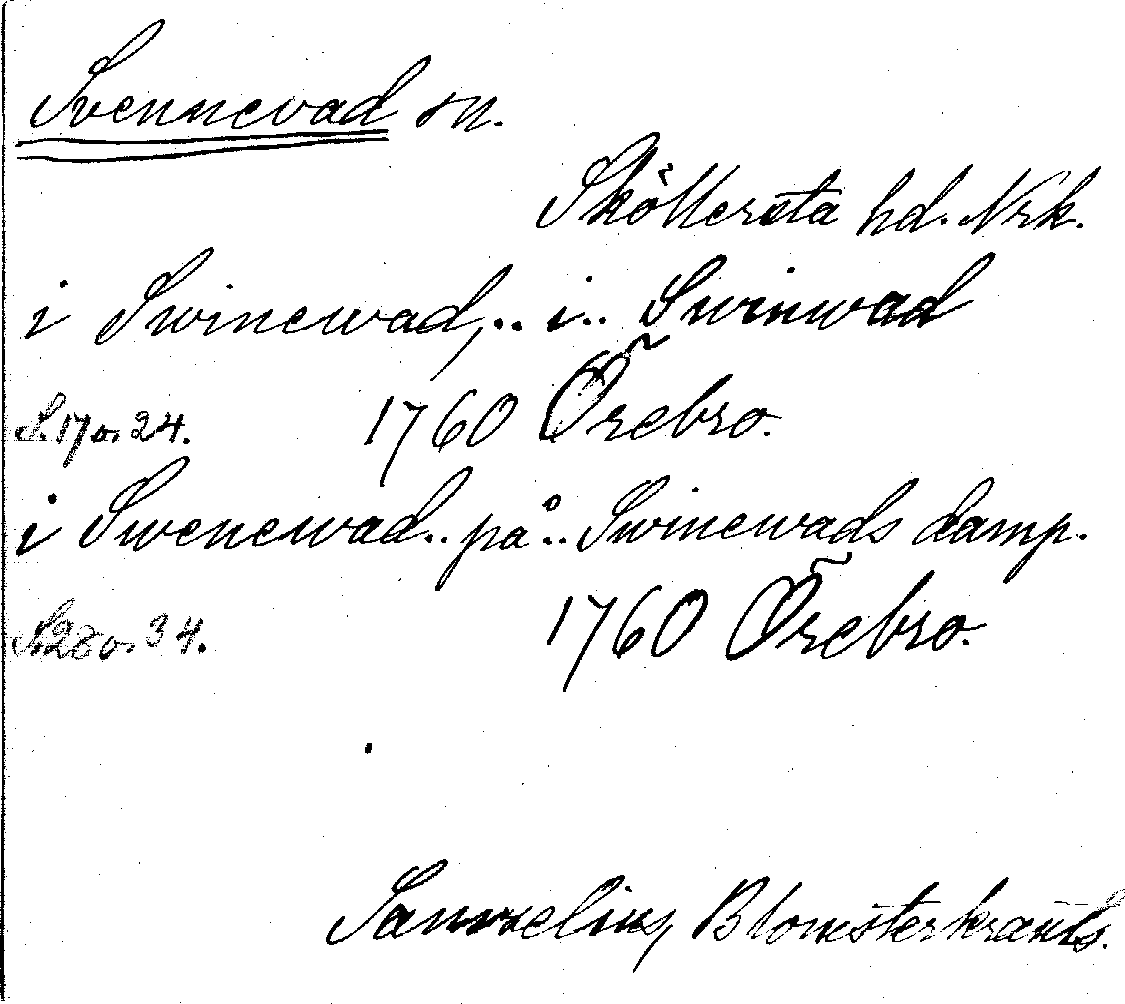 Svennevad sn.
Sköllersta hd. Nrk.
i Swinewad, .. i .. Swinwad
S. 17 o. 24. 1760 Örebro.
i Swenewad .. på .. Swinewads damp.
S. 28 o. 34. 1760 Örebro.
Samzelius, Blomsterkrants.